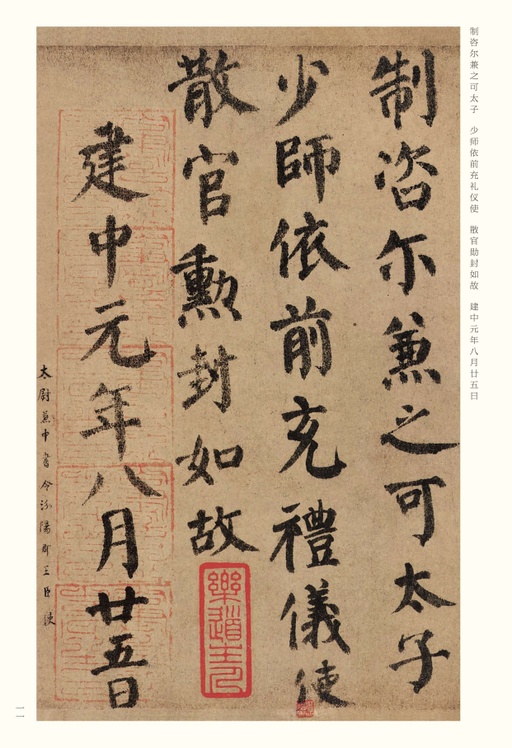 制咨尔兼之可太子　少师依前充礼仪使　散官勋封如故　建中元年八月廿五日
制咨尔兼之可太子
少師依前充禮儀使
散官勳封如故
樂道主人
建中元年八月廿五日
太尉兼中書令汾陽郡王臣使
一一